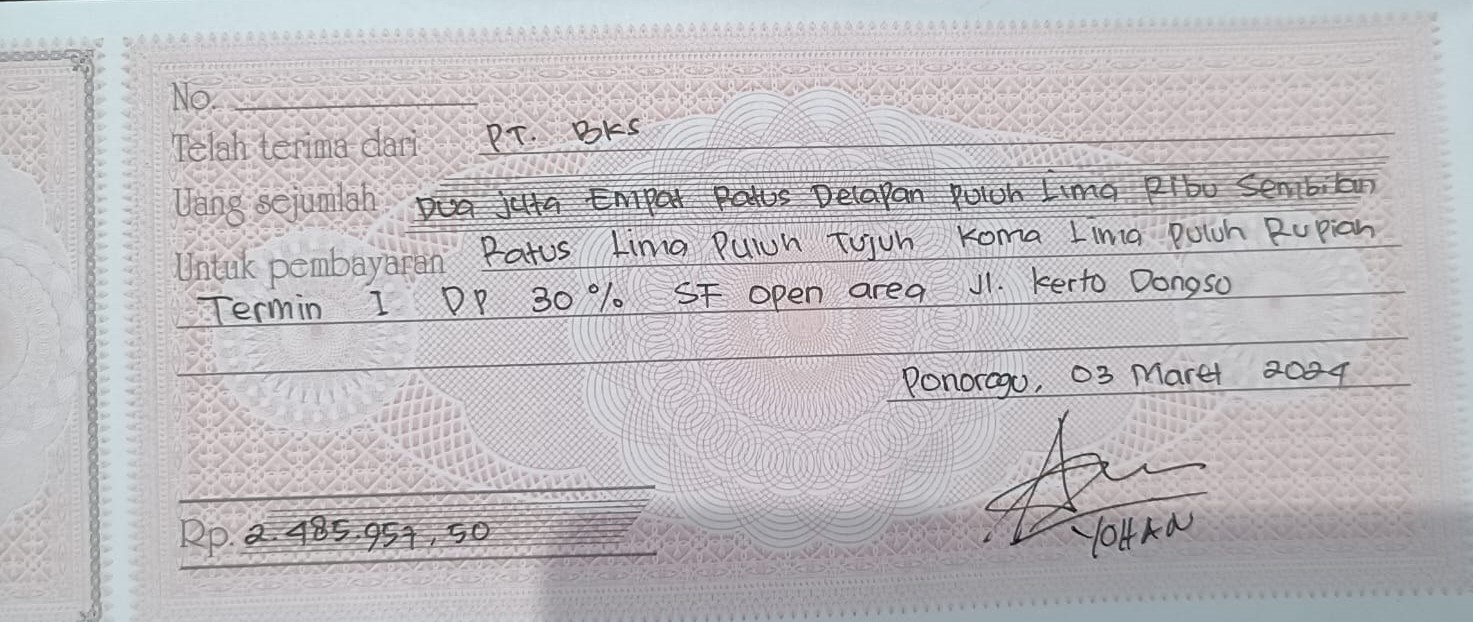 No.
Telah terima dari PT. BKS
Uang sejumlah Dua juta Empat Ratus Delapan Puluh Lima Ribu Sembilan
Untuk pembayaran Ratus Lima Puluh Tujuh Koma Lima Puluh Rupiah
Termin I DP 30% SF open area Jl. Kerto Dongso
Ponorogo, 03 Maret 2024
Rp. 2.485.957,50
YOHAN